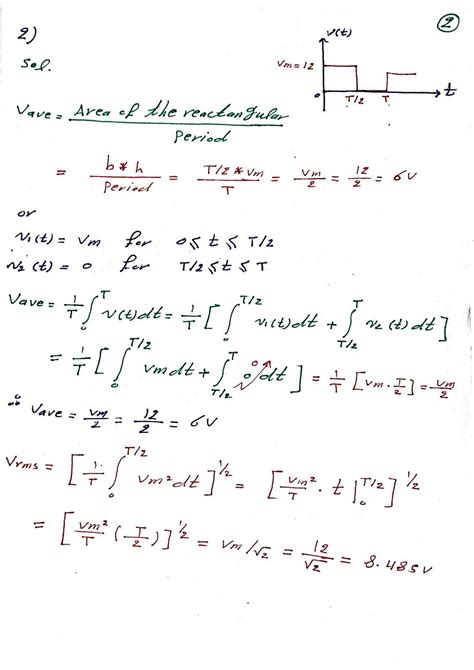 2
2)
Sol.
v(t)
Vm = 12
0 T/2 T t
Vave = Area of the reactangular / Period
= b*h / Period = T/2 * Vm / T = Vm/2 = 12/2 = 6V
or
v1(t) = Vm for 0 ≤ t ≤ T/2
v2(t) = 0 for T/2 ≤ t ≤ T
Vave = 1/T ∫₀ᵀ v(t) dt = 1/T [ ∫₀^T/2 v1(t) dt + ∫_T/2^T v2(t) dt ]
= 1/T [ ∫₀^T/2 Vm dt + ∫_T/2^T 0 dt ] 0 = 1/T [ Vm · T/2 ] = Vm/2
∴ Vave = Vm/2 = 12/2 = 6V
Vrms = [ 1/T ∫₀^T/2 Vm² dt ]^1/2 = [ Vm²/T · t |₀^T/2 ]^1/2
= [ Vm²/T ( T/2 ) ]^1/2 = Vm/√2 = 12/√2 = 8.485V